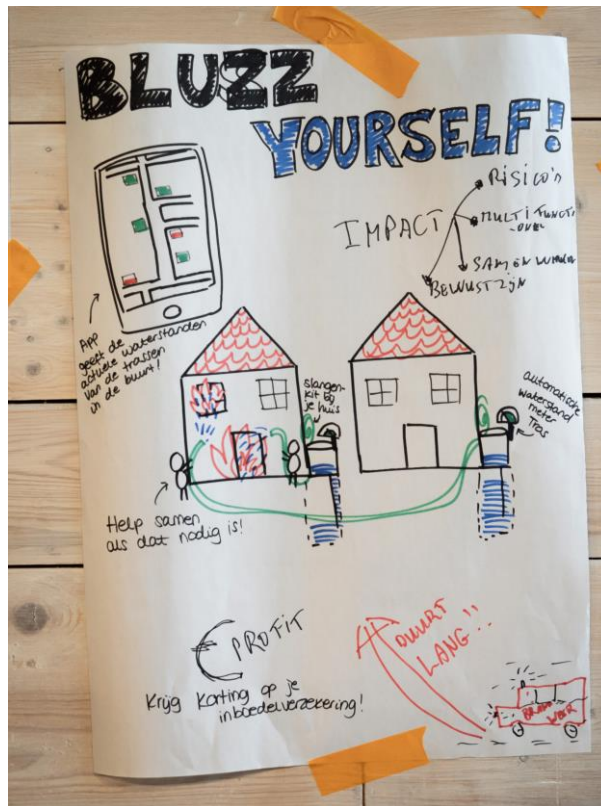 BLUZZ
YOURSELF!
IMPACT
RISICO'S
MULTI FUNCTI
-ONEEL
SAMENWERKEN
BEWUSTZIJN
App
geeft de
actuele waterstanden
van de trassen
in de buurt!
slangen-
kit bij
je huis
automatische
waterstand
meter
Tras
Help samen
als dat nodig is!
€ PROFIT
Krijg korting op je
inboedelverzekering!
DUURT
LANG!!
BRAND
WEER